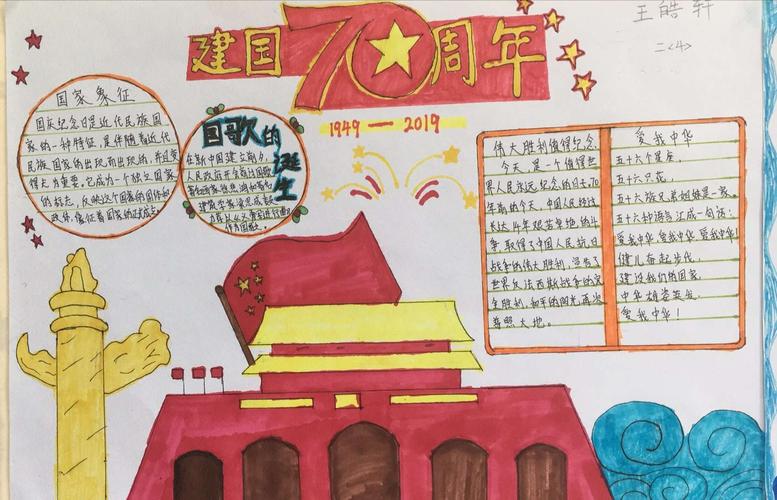 王皓轩
二<4>
建国70周年
1949—2019
国家象征
国庆纪念日是近代民族国
家的一种特征，是伴随着近代
民族国家的出现而出现的，并且变
得尤为重要。它成为一个独立国家
的标志，反映这个国家的国体和
政体，象征着国家的
国歌的诞生
在新中国建立前夕，
人民政府
伟大胜利值得纪念
今天，是一个值得世
界人民永远纪念的日子。70
年前的今天，中国人民经过
长达14年艰苦卓绝的斗
争，取得了中国人民抗日
战争的伟大胜利，宣告了
世界反法西斯战争的完
全胜利，和平的阳光再次
普照大地。
爱我中华
五十六个星座，
五十六只花，
五十六族兄弟姐妹是一家，
五十六种语言汇成一句话：
爱我中华爱我中华爱我中华！
健儿奋起步伐，
建设我们的国家，
中华雄姿英发，
爱我中华！